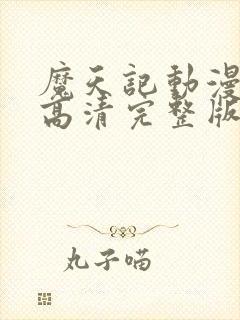 魔天記動漫
高清完整版
丸子喵